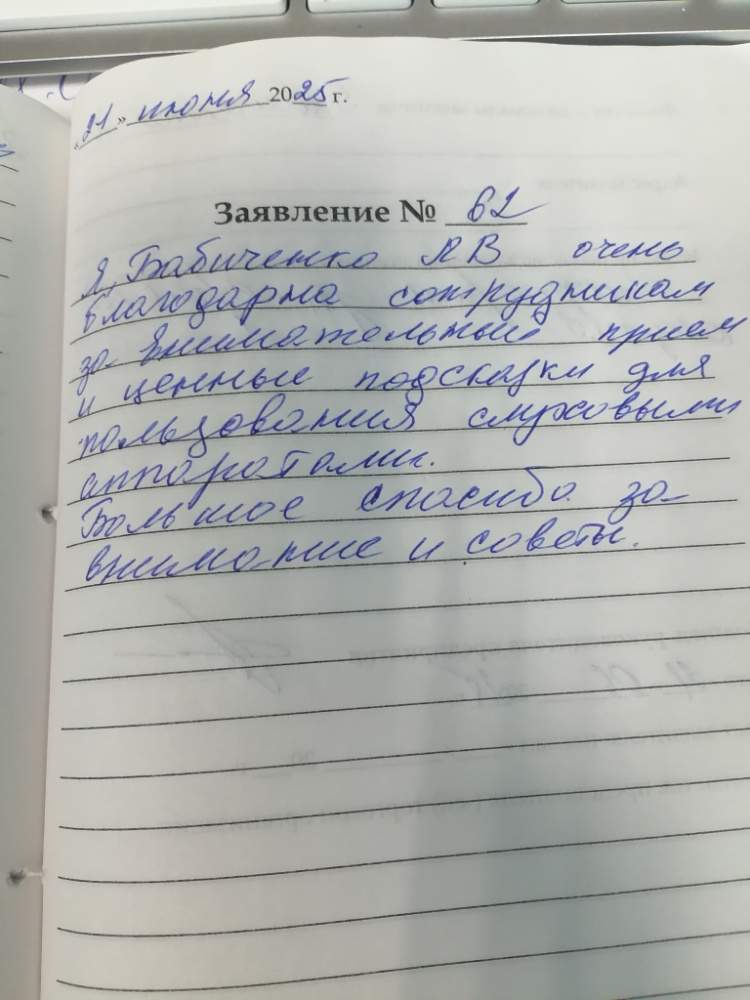 «21» июня 2025 г.
Заявление № 62
Я, Бабиченко ЛВ очень
благодарна сотрудникам
за внимательный прием
и ценные подсказки для
пользования слуховыми
аппаратами.
Большое спасибо за
внимание и советы.